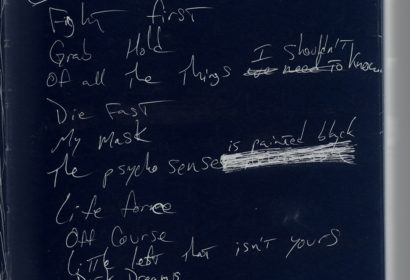 Fight first
Grab Hold
I shouldn't
Of all the things we need to know
Die Fast
My Mask
is painted black
The psycho sense
Life force
Off Course
Little left that isn't yours
Dark Dreams